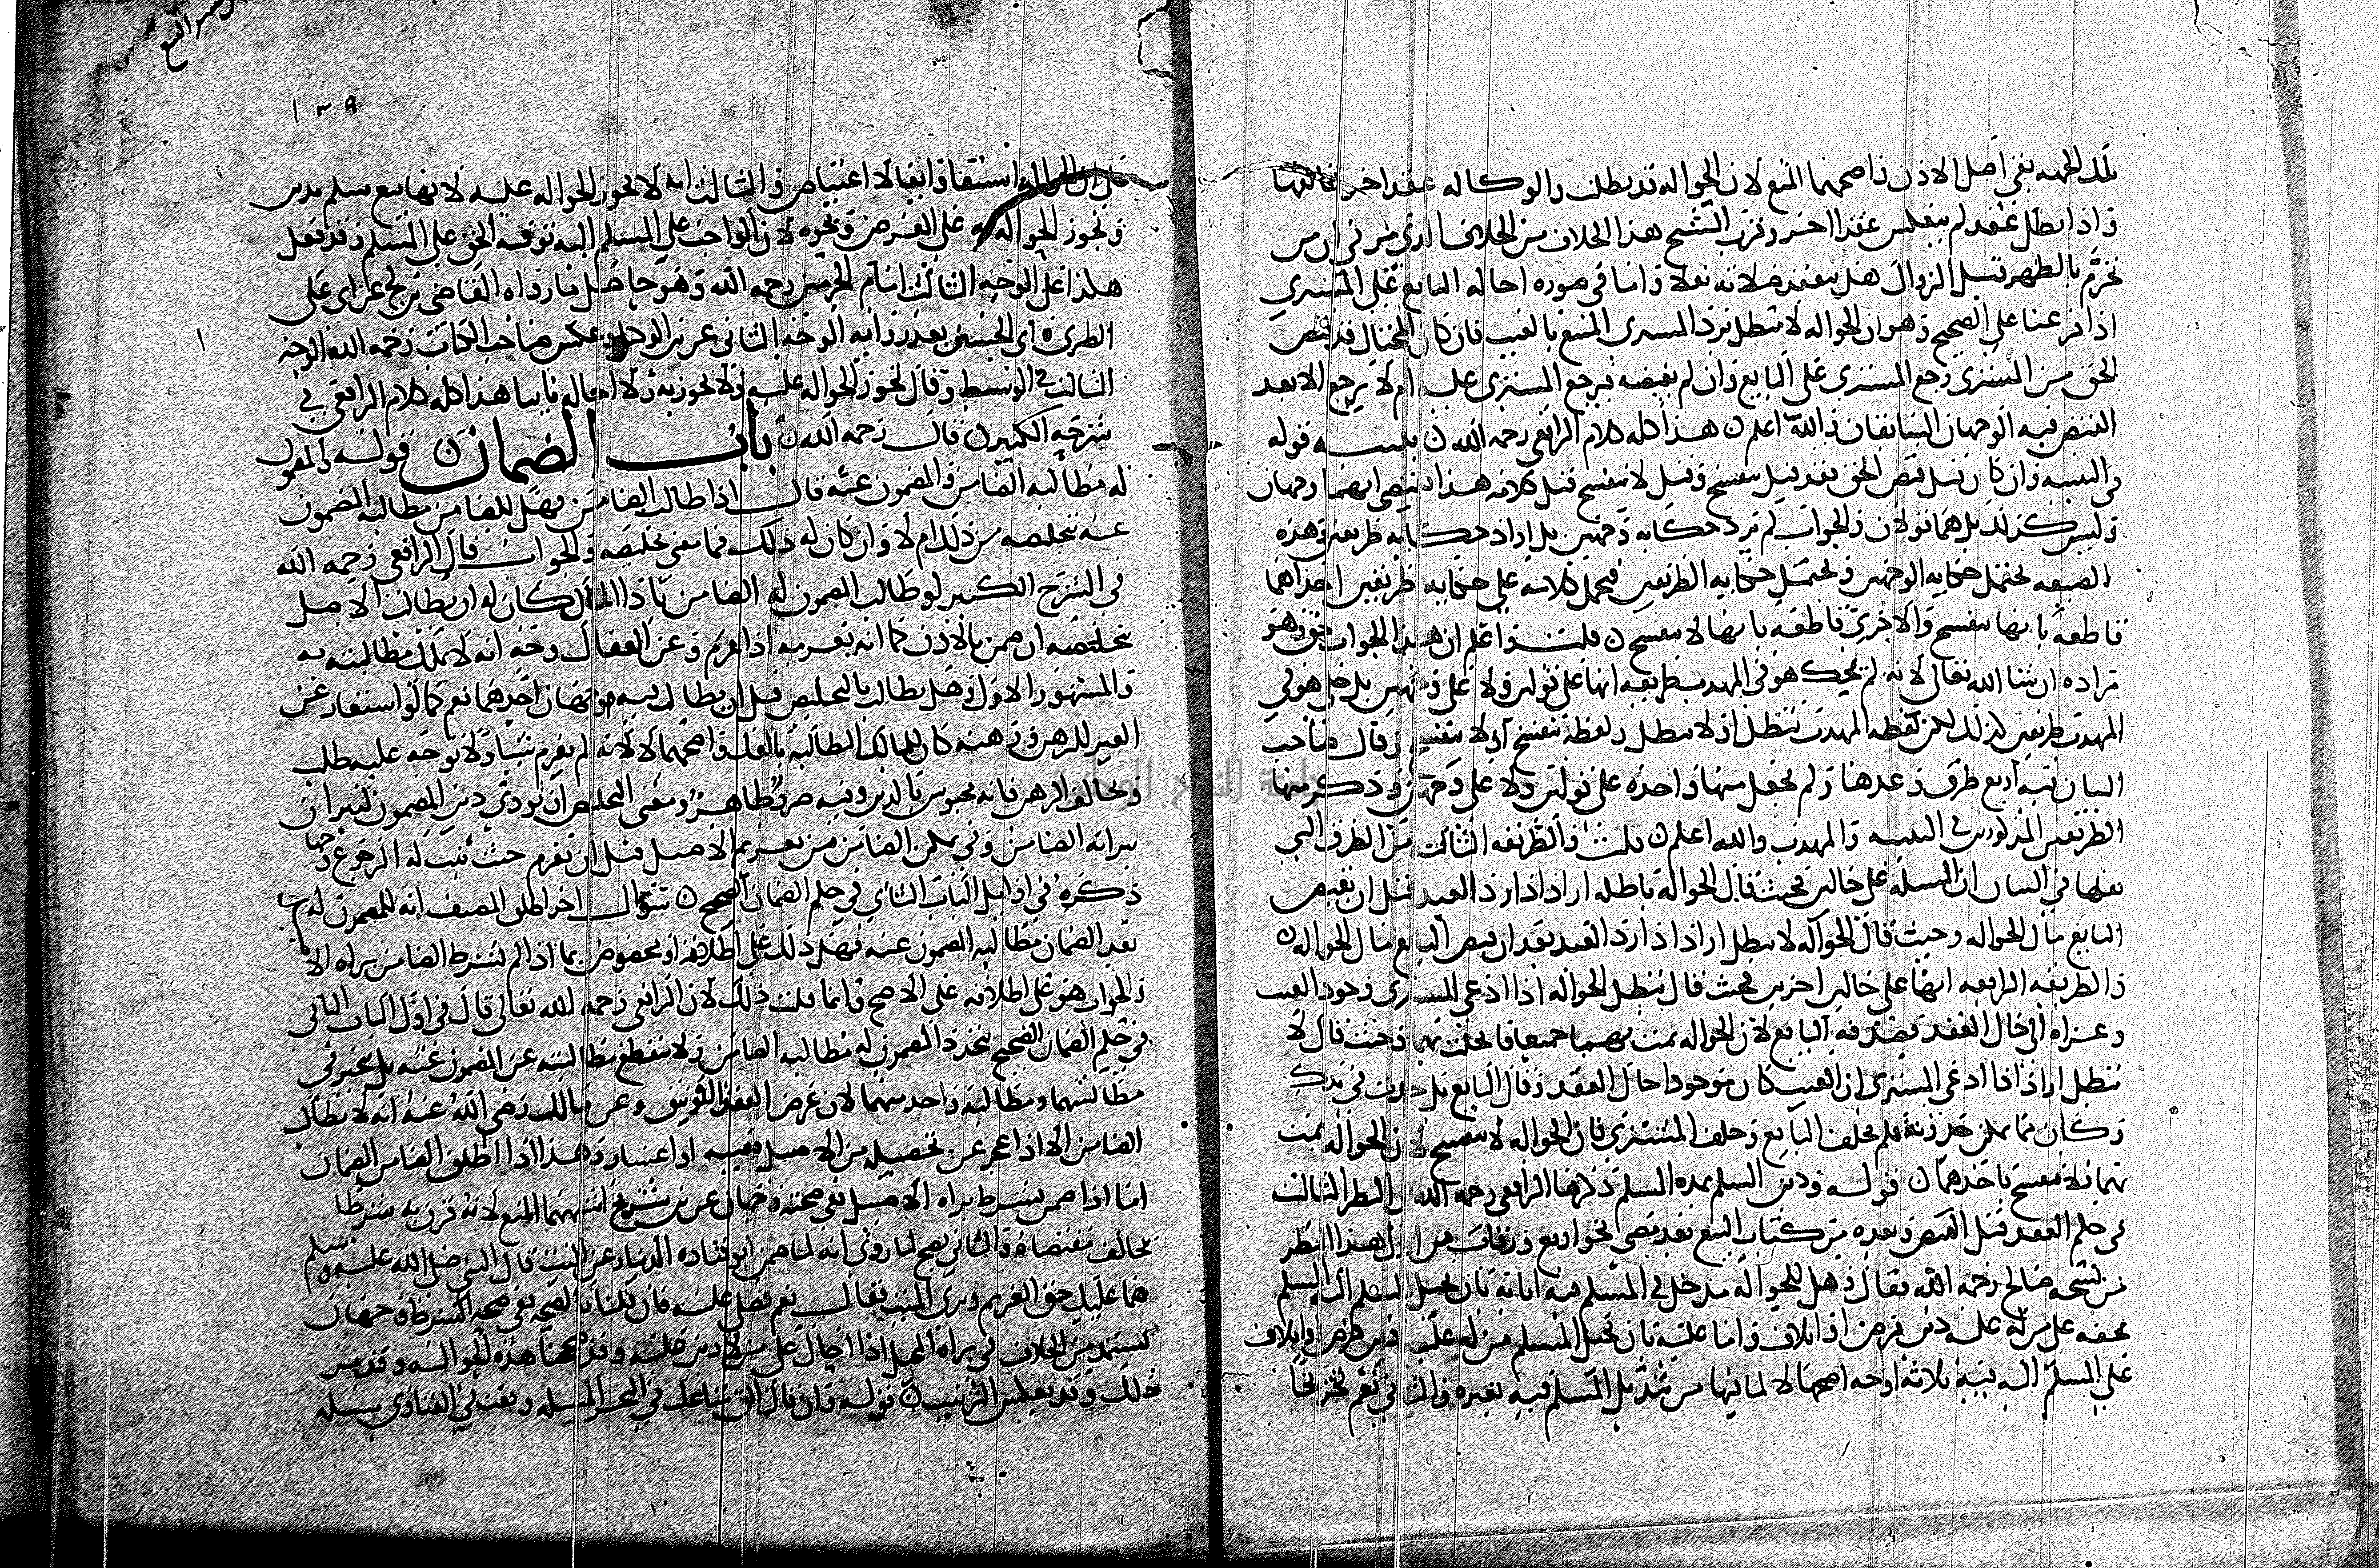 تلك الجهة بقي أصل الاذن واصحهما المنع لان الحواله قد بطلت والوكاله عقد اخر يخالفها
واذا بطل عقد لم ينعكس عقدا اخر وقرب الشيخ هذا الخلاف من الخلاف الذي مر في ان من
تحرم بالظهر قبل الزوال هل ينعقد صلاته نفلا واما في صوره احاله البايع على المشتري
اذا فرعنا على الصحيح وهو ان الحواله لا تبطل فرد المشتري المبيع بالعيب فان كان المحتال قد قبض
الحق من المشتري رجع المشتري على البايع وان لم يقبضه فيرجع المشتري عليه ام لا يرجع الا بعد
القبض فيه الوجهان السابقان والله اعلم هذا كله كلام الرافعي رحمه الله تنبيه قوله
في التنبيه وان كان قبل قبض الحق فقد قيل ينفسخ وقيل لا ينفسخ قيل كلامه هذا يقتضي انهما وجهان
وليس كذلك بل هما قولان والجواب لم يرد حكايه وجهين بل اراد حكايه طريقين وهذه
الصيغه تحتمل حكايه الوجهين وتحتمل حكايه الطريقين فيحمل كلامه على حكايه طريقين احداهما
قاطعة بانها تنفسخ والاخرى قاطعه بانها لا تنفسخ قلت واعلم ان هذا الجواب حق وهو
مراده ان شا الله تعالى لانه لم يحك هو في المهذب طريقه انها على قولين ولا على وجهين بل حكى هو في
المهذب طريقين كذلك لكن لفظه المهذب تبطل او لا تبطل ولفظة تنفسخ او لا تنفسخ وقال صاحب
البيان فيه اربع طرق وعدها ولم يجعل منها واحدة على قولين ولا على وجهين وذكر منها
الطريقين المذكورين في التنبيه والمهذب والله اعلم قلت والطريقه الثالثه من الطرق التي
نقلها في البيان ان المسئلة على حالين فحيث قال الحوالة باطله اراد اذا رد العبد قبل ان يقبض
البايع مال الحواله وحيث قال الحواله لا تبطل اراد اذا رد العبد بعد ان قبض البايع مال الحواله
والطريقه الرابعه انها على حالين اخرين فحيث قال تبطل الحواله اذا ادعى المشتري وجود العيب
وعزاه الى حال العقد فصدقه البايع لان الحواله تمت بهما جميعا فانحلت بهما وحيث قال لا
تبطل اراد اذا ادعى المشتري ان العيب كان موجودا حال العقد وقال البايع بل حدث في يدك
وكان مما يمكن حدوثه فلم يحلف البايع وحلف المشتري فان الحواله لا تنفسخ لان الحواله تمت
بهما فلا تنفسخ باحدهما قوله ودين السلم هذه المسئلة ذكرها الرافعي رحمه الله في النظر الثالث
في حكم العقد قبل القبض وبعده من كتاب البيع بعد مضي نحو اربع ورقات من اول هذا النظر
من نسخه صالح رحمه الله فقال وهل للحوالة مدخل في المسلم فيه اما به بان يحيل المسلم اليه المسلم
بحقه على من له عليه دين قرض او اتلاف واما عليه بان يحيل المسلم من له عليه دين قرض او اتلاف
على المسلم اليه فيه ثلاثه اوجه اصحها لا لما فيها من تبديل المسلم فيه بغيره والثاني نعم تخريجا
على ان الحواله استيفا وايفا لا اعتياض والثالث انه لا تجوز الحواله عليه لانها بيع سلم بدين
وتجوز الحواله به على القرض ونحوه لان الواجب على المسلم اليه توفيه الحق على المسلم وقد فعل
هكذا على الوجه الثالث امام الحرمين رحمه الله وهو حاصل ما رواه القاضي بن كج عن ابي علي
الطبري وابي الحسين بعد روايه الوجه الثاني عن بن الوكيل وعكس صاحب الكتاب رحمه الله الوجه
الثالث في الوسيط وقال تجوز الحواله عليه ولا تجوز به ولا احاله ثابتا هذا كله كلام الرافعي في
شرحه الكبير قال رحمه الله باب الضمان قوله والمضمون
له مطالبه الضامن والمضمون عنه قال اذا طالب الضامن فهل للضامن مطالبه المضمون
عنه بتخليصه من ذلك ام لا وان كان له ذلك فما معنى تخليصه والجواب قال الرافعي رحمه الله
في الشرح الكبير لو طالب المضمون له الضامن باداء المال كان له ان يطالب الاصيل
بتخليصه ان ضمن بالاذن كما انه يغرمه اذا غرم وعن القفال وجه انه لا يملك مطالبته به
والمشهور الاول وهل يطالب بالتخليص قبل ان يطالب فيه وجهان احدهما نعم كما لو استعار عين
الغير للرهن ورهنه كان للمالك المطالبة بالفك واصحهما لا لانه لم يغرم شيا ولا توجه عليه طلب
ويخالف الرهن فانه محبوس بالدين وفيه ضرر ظاهر ومعنى التخليص ان يودي دين المضمون ليبرا ن
ببراه الضامن وفي تمكن الضامن من تغريم الاصيل قبل ان يغرم حيث ثبت له الرجوع وجهان
ذكره في اوايل الباب الثاني في حكم الضمان الصحيح سؤال اخر اطلق المصنف انه للمضمون له
بعد الضمان مطالبه المضمون عنه فهل ذلك على اطلاقه او مخصوص بما اذا لم يشترط الضامن براه الاصيل
والجواب هو على اطلاقه على الاصح وانما قلت ذلك لان الرافعي رحمه الله تعالى قال في اول الباب الثاني
في حكم الضمان الصحيح يتجدد للمضمون له مطالبه الضامن ولا ينقطع مطالبته عن المضمون عنه بل يتخير في
مطالبتهما ومطالبة واحد منهما لان غرض العقد التوثيق وعن مالك رضي الله عنه انه لا يطالب
الضامن الا اذا عجز عن تحصيله من الاصيل لغيبه او اعسار وهذا اذا اطلق الضامن الضمان
اما اذا ضمن بشرط براه الاصيل ففي صحته وجهان عن بن سريج اشبههما المنع لانه قرن به شرطا
يخالف مقتضاه والثاني يصح لما روي انه لما ضمن ابو قتاده الدينارين عن الميت قال النبي صلى الله عليه وسلم
هما عليك حق الغريم وبرئ الميت فقال نعم فصلى عليه فان قلنا بالصحه ففي صحه الشرط وجهان
تستمد من الخلاف في براه المحيل اذا احال على من لا دين عليه وقد صححنا هذه الحواله وقد مر
ذلك وقد يعكس الترتيب قوله وان قال الق متاعك في البحر المسله وقعت في الفتاوى مسله